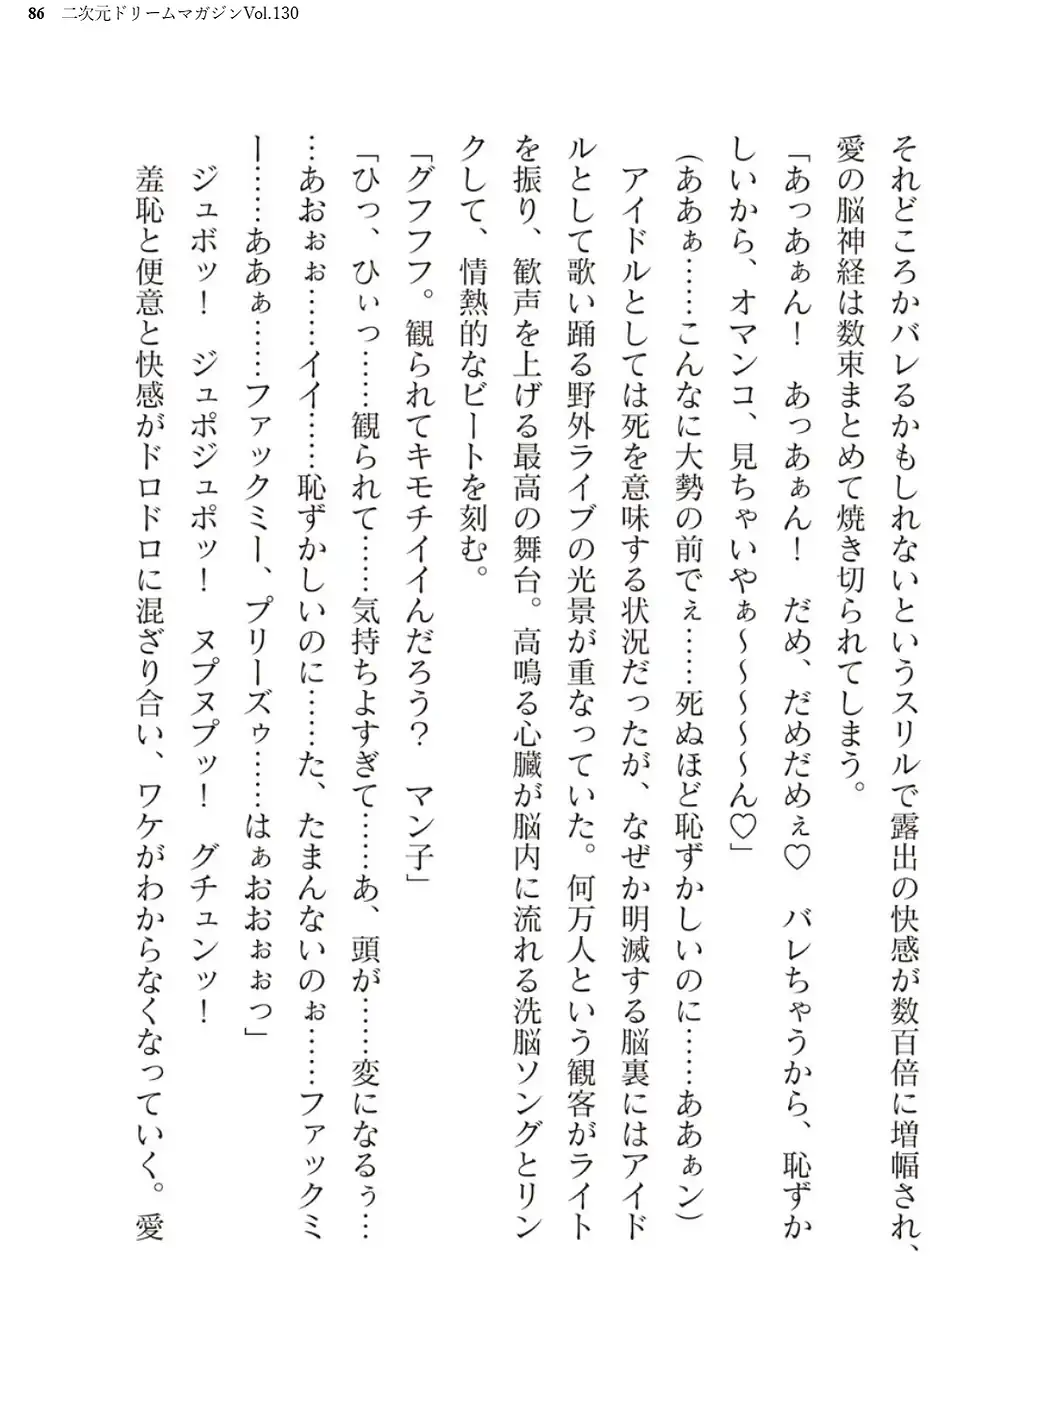 86 二次元ドリームマガジンVol.130
それどころかバレるかもしれないというスリルで露出の快感が数百倍に増幅され、
愛の脳神経は数束まとめて焼き切られてしまう。
「あっあぁん！　あっあぁん！　だめ、だめだめぇ♡　バレちゃうから、恥ずか
しいから、オマンコ、見ちゃいやぁ～～～～～ん♡」
（ああぁ……こんなに大勢の前でぇ……死ぬほど恥ずかしいのに……ああぁン）
　アイドルとしては死を意味する状況だったが、なぜか明滅する脳裏にはアイド
ルとして歌い踊る野外ライブの光景が重なっていた。何万人という観客がライト
を振り、歓声を上げる最高の舞台。高鳴る心臓が脳内に流れる洗脳ソングとリン
クして、情熱的なビートを刻む。
「グフフフ。観られてキモチイイんだろう？　マン子」
「ひっ、ひぃっ……観られて……気持ちよすぎて……あ、頭が……変になるぅ…
…あおぉぉ……イイ……恥ずかしいのに……た、たまんないのぉ……ファックミ
ー……ああぁ……ファックミー、プリーズゥ……はぁおおぉぉっ」
　ジュボッ！　ジュポジュポッ！　ヌプヌプッ！　グチュンッ！
　羞恥と便意と快感がドロドロに混ざり合い、ワケがわからなくなっていく。愛